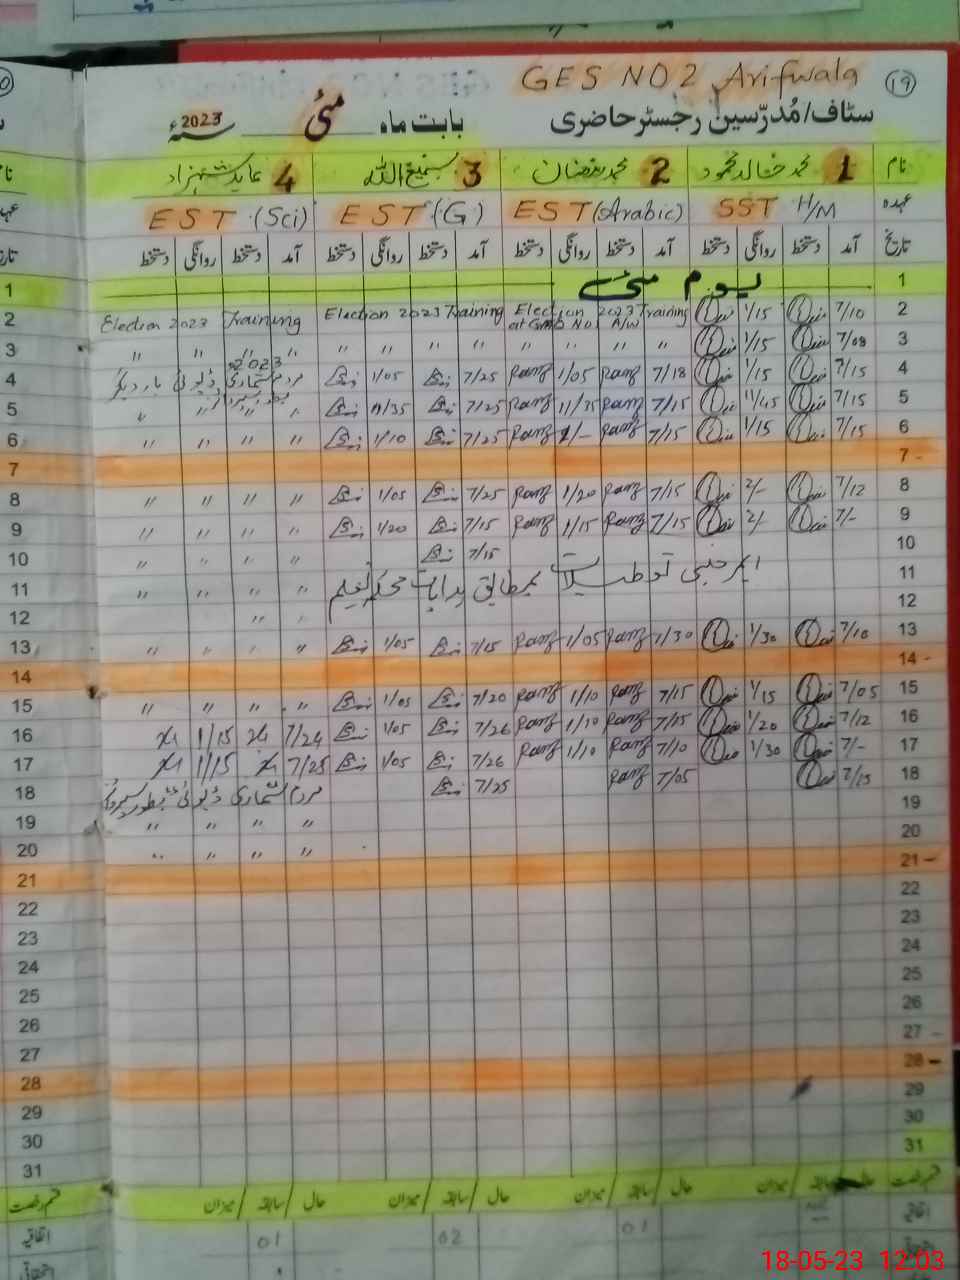 GES NO 2 Arifwala 19
سٹاف/مُدرّسین رجسٹر حاضری بابت ماہ مئی 2023 سنہء
نام 1 محمد خالد محمود 2 محمد رمضان 3 سمیع اللہ 4 عابد شہزاد
عہدہ SST H/M EST (Arabic) EST (G) EST (Sci)
تاریخ آمد دستخط روانگی دستخط آمد دستخط روانگی دستخط آمد دستخط روانگی دستخط آمد دستخط روانگی دستخط
1 یوم مئی 1
2 7/10 1/15 Election 2023 Training at GMO NO 1 A/W Election 2023 Training Election 2023 Training 2
3 7/08 1/15 " " " " " " " " " " " " 3
4 7/15 1/15 7/18 Ramz 1/05 Ramz 7/25 1/05 مردم شماری 2023 ڈیوٹی بار دیگر 4
5 7/15 11/45 7/15 Ramz 11/35 Ramz 7/25 11/35 " " " 5
6 7/15 1/15 7/15 Ramz Ramz 7/25 1/10 " " " " 6
7 7
8 7/12 2/- 7/15 Ramz 1/20 Ramz 7/25 1/05 " " " " 8
9 7/- 2/- 7/15 Ramz 1/15 Ramz 7/15 1/20 " " " " 9
10 7/15 " " " " 10
11 ایمرجنسی تعطیلات بمطابق ہدایات محکمہ تعلیم " " " " 11
12 " " 12
13 7/10 1/30 7/30 Ramz 1/05 Ramz 7/15 1/05 " " " " 13
14 14
15 7/05 1/15 7/15 Ramz 1/10 Ramz 7/20 1/05 " " " " 15
16 7/12 1/20 7/15 Ramz 1/10 Ramz 7/26 1/05 7/24 1/15 16
17 7/- 1/30 7/10 Ramz 1/10 Ramz 7/26 1/05 7/25 1/15 17
18 7/15 7/05 Ramz 7/25 مردم شماری ڈیوٹی بطور سپروائزر 18
19 " " " " 19
20 " " " " 20
21 21
22 22
23 23
24 24
25 25
26 26
27 27
28 28
29 29
30 30
31 31
قسم رخصت حال / سابقہ / میزان حال / سابقہ / میزان حال / سابقہ / میزان حال / سابقہ / میزان قسم رخصت
اتفاقیہ 01 02 01 اتفاقیہ
18-05-23 12:03